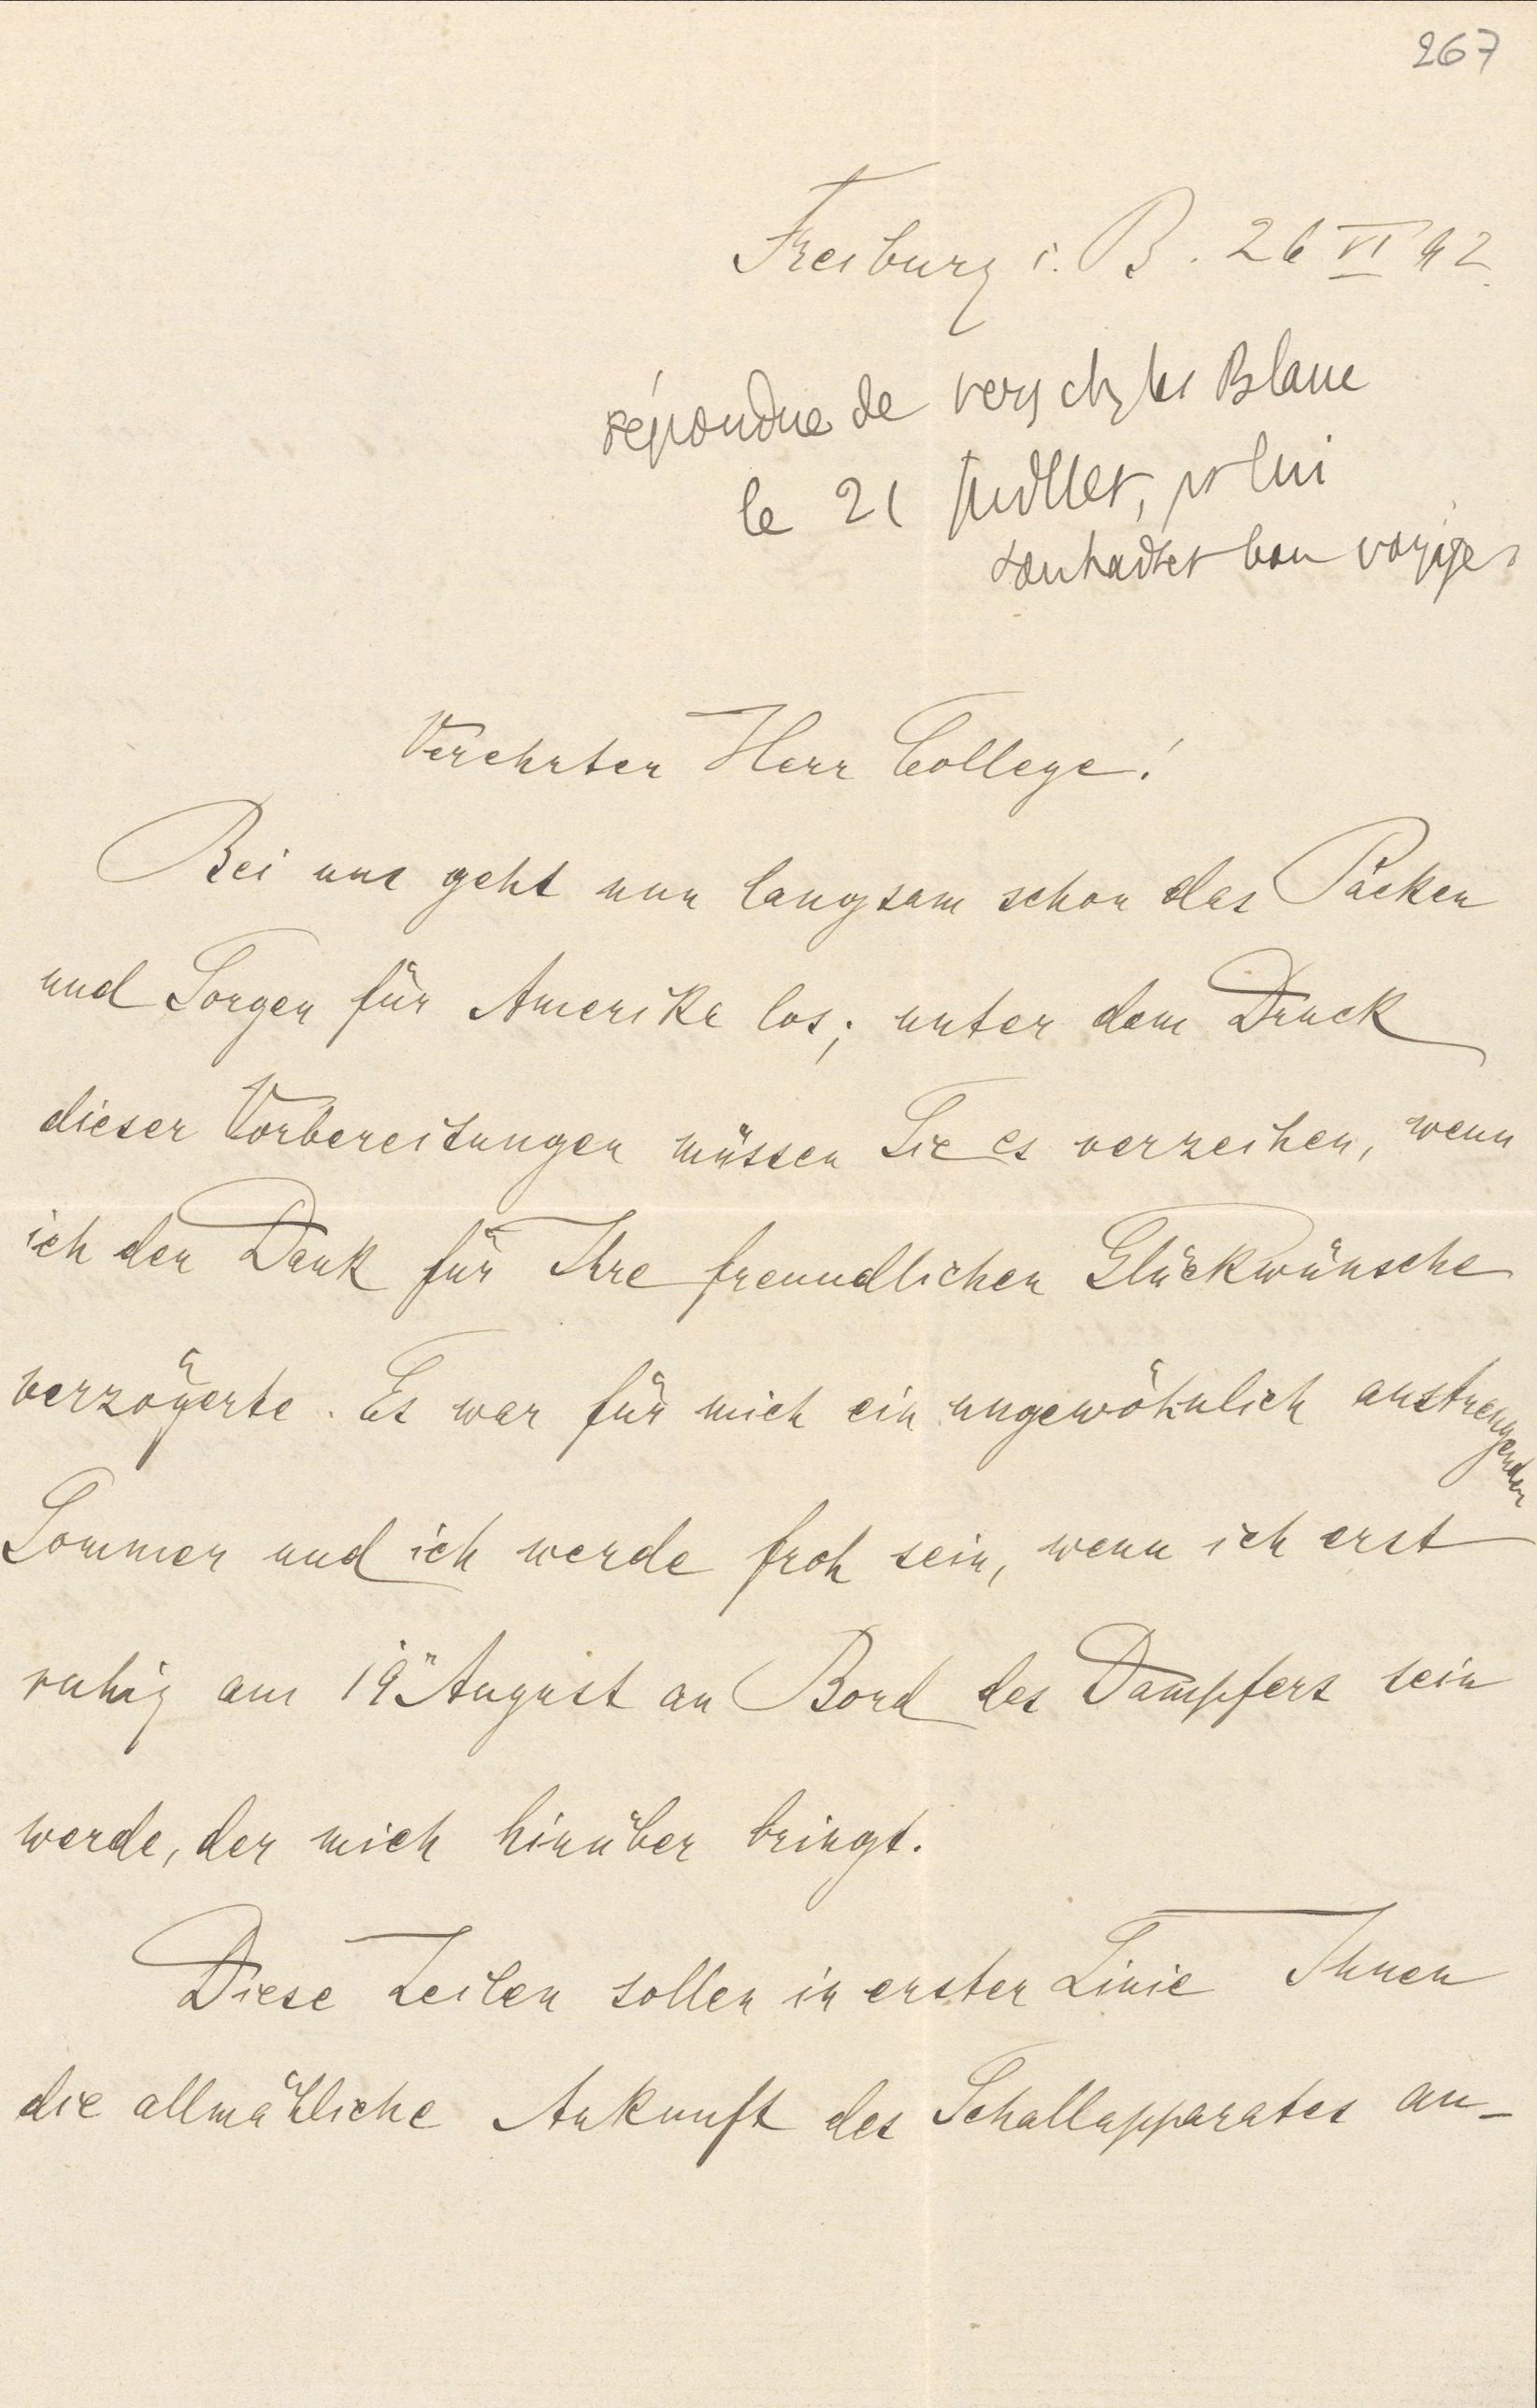 267
Freiburg i. B. 26 VI 92.
répondue de vers chez les Blanc
le 21 Juillet, pr lui
souhaiter bon voyage
Verehrter Herr College!
Bei uns geht nun langsam schon das Packen
und Sorgen für Amerika los; unter dem Druck
dieser Vorbereitungen müssen Sie es verzeihen, wenn
ich den Dank für Ihre freundlichen Glückwünsche
verzögerte. Es war für mich ein ungewöhnlich anstrengender
Sommer und ich werde froh sein, wenn ich erst
ruhig am 19n August an Bord des Dampfers sein
werde, der mich hinüber bringt.
Diese Zeilen sollen in erster Linie Ihnen
die allmähliche Ankunft des Schallapparates an-